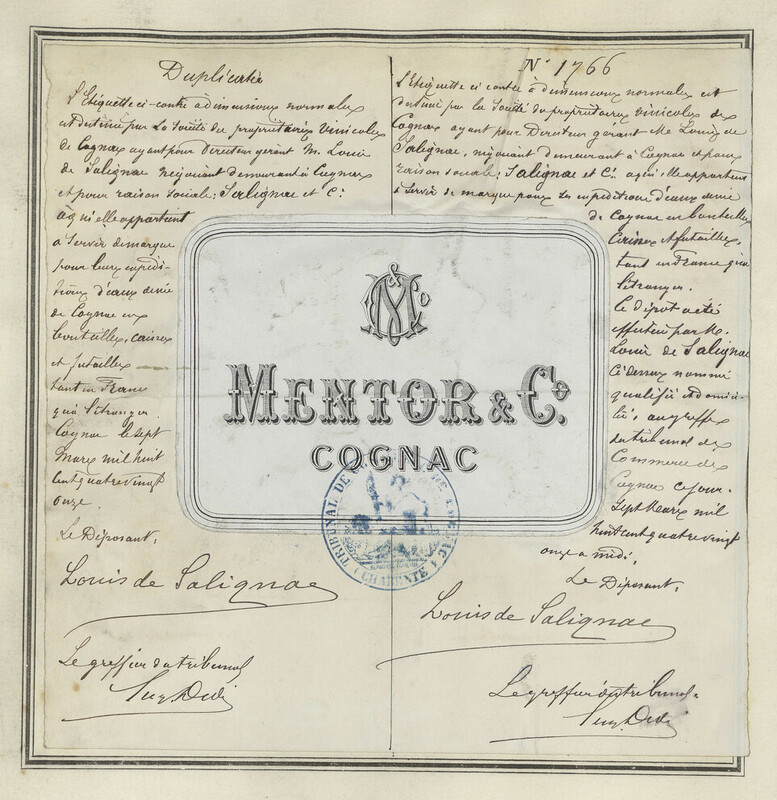 Duplicata
L'Etiquette ci-contre à dimensions normales
est destinée par la Société des propriétaires vinicoles
de Cognac ayant pour Directeur gérant M. Louis
de Salignac négociant demeurant à Cognac
et pour raison sociale; Salignac et Cie
à qui elle appartient
à servir de marque
pour leurs expédi-
tions d'eaux de vie
de Cognac en
bouteilles, caisses
et futailles
tant en France
qu'à l'étranger.
Cognac le sept
Mars mil huit
cent quatre vingt
onze.
Le Déposant,
Louis de Salignac
Le greffier du tribunal
N° 1766
L'Etiquette ci contre à dimensions normales est
destinée par la Société des propriétaires vinicoles de
Cognac ayant pour Directeur gérant M. Louis de
Salignac, négociant demeurant à Cognac et pour
raison sociale; Salignac et Cie à qui elle appartient
à servir de marque pour les expéditions d'eaux de vie
de Cognac en bouteilles,
Caisses et futailles,
tant en France qu'à
l'étranger.
Le dépôt a été
effectué par M.
Louis de Salignac
Ci dessus nommé
qualifié et domici-
lié, au greffe
du tribunal de
Commerce de
Cognac ce jour.
Sept Mars mil
huit cent quatre vingt
onze à midi.
Le Déposant,
Louis de Salignac
Le greffier du tribunal.
M & Co
MENTOR & Co.
COGNAC
TRIBUNAL DE COGNAC
(CHARENTE)